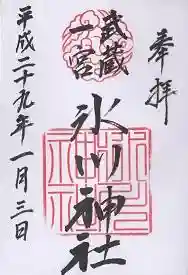 奉拝
武蔵
一宮
氷川神社
平成二十九年一月三日
氷川
神社